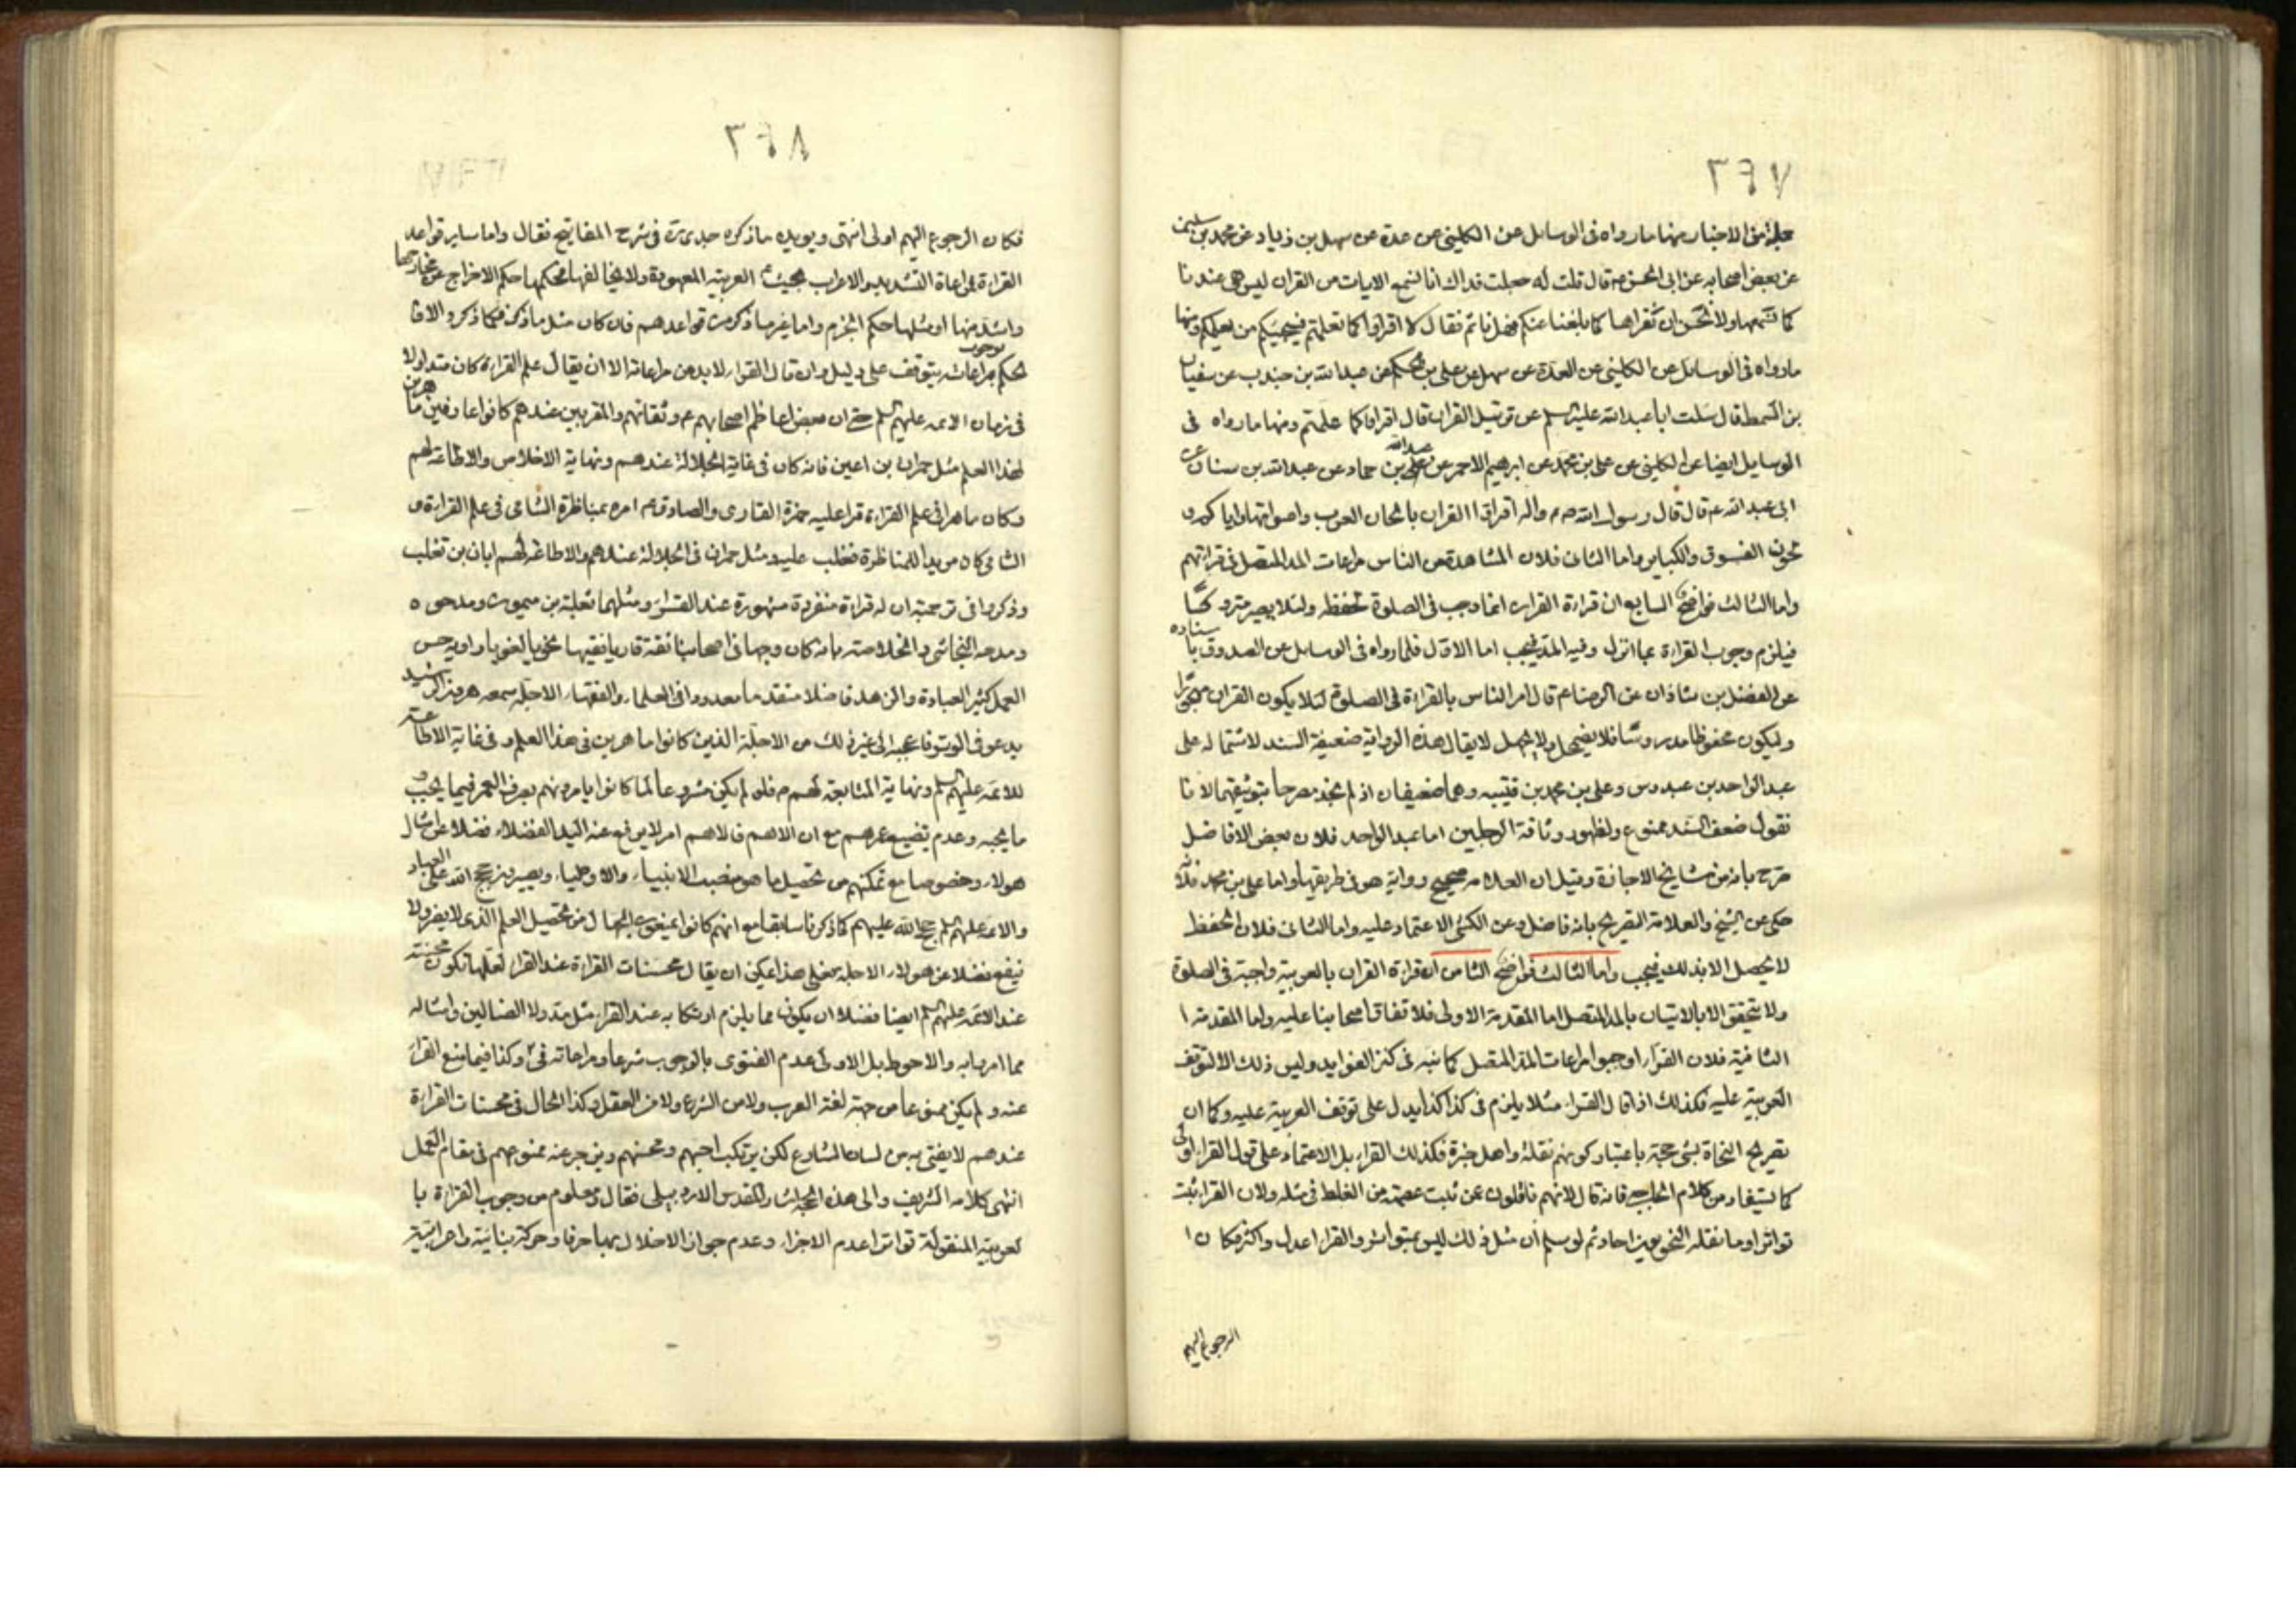 ٣٦٧
جملة من الاخبار منها ما رواه فى الوسايل عن الكلينى عن عدة عن سهل بن زياد عن محمد بن سليمن
عن بعض اصحابه عن ابى الحسن ع قال قلت له جعلت فداك انا نسمع الايات من القران ليس هى عندنا
كما نسمعها ولا نحسن ان نقراها كما بلغنا عنكم فهل ناثم فقال لا اقراوا كما تعلمتم فسيجيئكم من يعلمكم ومنها
ما رواه فى الوسايل عن الكلينى عن العدة عن سهل عن على بن الحكم عن عبد الله بن جندب عن سفيان
بن السمط قال سئلت ابا عبد الله عليه السلم عن ترتيل القران قال اقراوا كما علمتم ومنها ما رواه فى
الوسايل ايضا عن الكلينى عن على بن محمد عن ابرهيم الاحمر عن عبد الله بن حماد عن عبد الله بن سنان عن
ابى عبد الله ع قال قال رسول الله ص واله اقراوا القران بالحان العرب واصواتها واياكم و
لحون الفسوق والكباير واما الثانى فلان المشاهدة من الناس مراعات المد المتصل فى قراءتهم
واما الثالث فواضح السابع ان قراءة القران انما وجب فى الصلوة لحفظه ولئلا يصير متروكا
فيلزم وجوب القراءة عما انزل وفيه المد فيجب اما الاول فلما رواه فى الوسايل عن الصدوق باسناده
عن الفضل بن شاذان عن الرضا ع قال امر الناس بالقراءة فى الصلوة لئلا يكون القران مهجورا
وليكون محفوظا مدروسا فلا يضمحل ولا يجهل لا يقال هذه الرواية ضعيفة السند لاشتماله على
عبد الواحد بن عبدوس وعلى بن محمد بن قتيبه وهما ضعيفان اذ لم نجد مصرحا بتوثيقهما لانا
نقول ضعف السند ممنوع ولظهور وثاقة الرجلين اما عبد الواحد فلان بعض الافاضل
صرح بانه من مشايخ الاجازة وقيل ان العلامه صحح رواية هو فى طريقها واما على بن محمد فلانه
حكى عن الشيخ والعلامة التصريح بانه فاضل وعن الكشى الاعتماد عليه واما الثانى فلان الحفظ
لا يحصل الا بذلك فيجب واما الثالث فواضح الثامن ان قراءة القران بالعربية واجبة فى الصلوة
ولا يتحقق الا بالاتيان بالمد المتصل اما المقدمة الاولى فلاتفاق اصحابنا عليه واما المقدمة ا
الثانية فلان القراء اوجبوا مراعات المد المتصل كما نبه فى كنز الفوايد وليس ذلك الا لتوقف
العربية عليه فكذلك اذا قال القراء مثلا يلزم فى كذا كذا يدل على توقف العربية عليه وكما ان
تصريح النحاة بشئ حجة باعتبار كونهم نقلة واهل خبرة فكذلك القراء بل الاعتماد على قول القراء اولى
كما يستفاد من كلام الحاجبى فانه قال لانهم ناقلون عمن ثبت عصمته من الغلط فى مثله ولان القراء ثبت
تواترا وما نقله النحويون احاد ثم لو سلم ان مثل ذلك ليس بمتواتر والقراء اعدل واكثر فكان ا
الرجوع اليهم
٣٦٨
فكان الرجوع اليهم اولى انتهى ويويده ما ذكره جدى ره فى شرح المفاتيح فقال واما ساير قواعد
القراءة مراعاة التشديد والاعراب بحيث العربيه المعهودة ولا يخالفها فحكمها حكم الاخراج عن مخارجها
واشد منها او مثلها حكم الجزم واما غير ما ذكر من قواعدهم فان كان مثل ما ذكر فكما ذكر والا فا
لحكم بوجوب مراعاته يتوقف على دليل وان قال القراء لابد من مراعاته الا ان يقال علم القراءة كان متداولا
فى زمان الائمه عليهم السلم حتى ان بعض اعاظم اصحابهم ع وثقاتهم والمقربين عندهم كانوا عارفين ماهرين
لهذا العلم مثل حمران بن اعين فانه كان فى غاية الجلالة عندهم ونهاية الاخلاص والاطاعة لهم
وكان ماهرا فى علم القراءة قرا عليه حمزة القارى والصادق ع امره بمناظرة الشامى فى علم القراءة و
الشامى كان مريدا للمناظرة فغلب عليه ومثل حمران فى الجلالة عندهم والاطاعة لهم ابان بن تغلب
وذكروا فى ترجمته ان له قراءة منفردة مشهورة عند القراء ومثلهما ثعلبة بن ميمون ومدحوه
ومدحه النجاشى والخلاصة بانه كان وجها فى اصحابنا ثقة قاريا فقيها نحويا لغويا راويه حسن
العمل كثير العبادة والزهد فاضلا متقدما معدودا فى العلماء والفقهاء الاجلة سمعه هرون الرشيد
يدعو فى الوتر فاعجبه الى غير ذلك من الاجلة الذين كانوا ماهرين فى هذا العلم وفى غاية الاطاعة
للائمة عليهم السلم ونهاية المتابعة لهم ع فلو لم يكن مشروعا لما كانوا يامرونهم بصرف العمر فيما يجب و
ما يجبه وعدم تضييع عمرهم مع ان الاهم فالاهم امر لا يرفع عنه اليد الفضلاء فضلا عن امثال
هولاء وخصوصا مع تمكنهم من تحصيل ما هو منصب الانبياء والاوصياء ويصيرون حجج الله على العباد
والائمة عليهم السلم حجج الله عليهم كما ذكرنا سابقا مع انهم كانوا يمنعون الجهال من تحصيل العلم الذى لا يضر ولا
ينفع فضلا عن هولاء الاجلة فعلى هذا يمكن ان يقال محسنات القراءة عند القراء لعلها تكون محسنة
عند الائمة عليهم السلم ايضا فضلا ان يكون مما يلزم ارتكابه عند القراء مثل مد ولا الضالين وامثاله
مما امر بابه والاحوط بل الاولى عدم الفتوى بالوجوب شرعا ومراعاته فى وكذا فيما منع القراء
عنه ولم يكن ممنوعا من جهة لغة العرب ولا من الشرع ولا من العقل وكذا الحال فى محسنات القراءة
عندهم لا يفتى به من لسان الشارع لكن يرتكب احبهم ومحسنهم وينزجر عنه ممنوعهم فى مقام العمل
انتهى كلامه الشريف والى هذه الحجة اشار المقدس الاردبيلى فقال ومعلوم من وجوب القراءة با
لعربية المنقولة تواترا عدم الاجزاء وعدم جواز الاخلال بها حرفا وحركة بنائية واعرابية